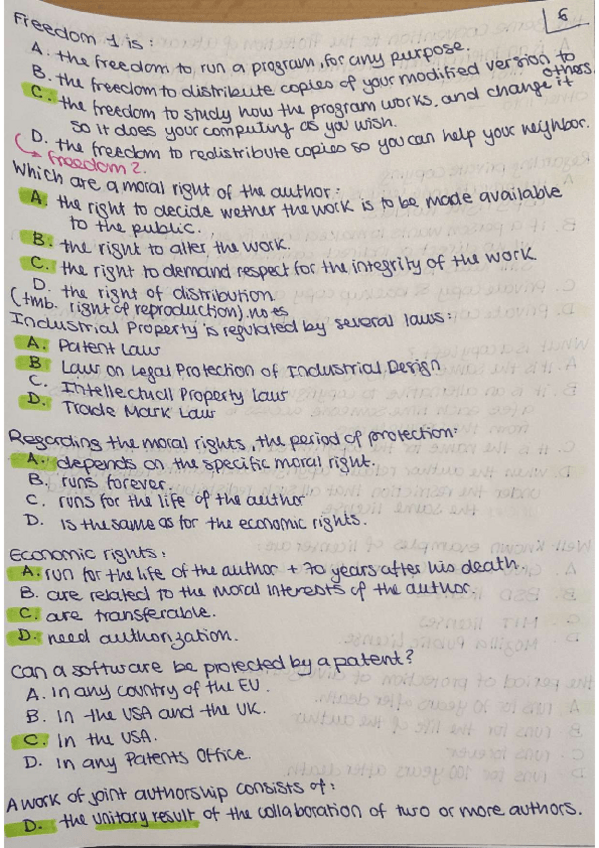 6
Freedom 1 is:
A. the freedom to run a program, for any purpose.
B. the freedom to distribute copies of your modified version to others.
C. the freedom to study how the program works, and change it
so it does your computing as you wish.
D. the freedom to redistribute copies so you can help your neighbor.
Freedom 2.
Which are a moral right of the author:
A. the right to decide wether the work is to be made available
to the public.
B. the right to alter the work.
C. the right to demand respect for the integrity of the work
D. the right of distribution
(tmb. right of reproduction).no es
Industrial Property is regulated by several laws:
A. Patent Law
B Law on Legal Protection of Industrial Design
C. Intellectual Property Law
D. Trade Mark Law
Regarding the moral rights, the period of protection:
A. depends on the specific moral right.
B. runs forever.
C. runs for the life of the author
D. is the same as for the economic rights.
Economic rights:
A. run for the life of the author + 70 years after his death.
B. are related to the moral interests of the author.
C. are transferable.
D. need authorization.
Can a software be protected by a patent?
A. In any country of the EU.
B. In the USA and the UK.
C. In the USA.
D. In any Patents Office.
A work of joint authorship consists of:
D. the unitary result of the collaboration of two or more authors.